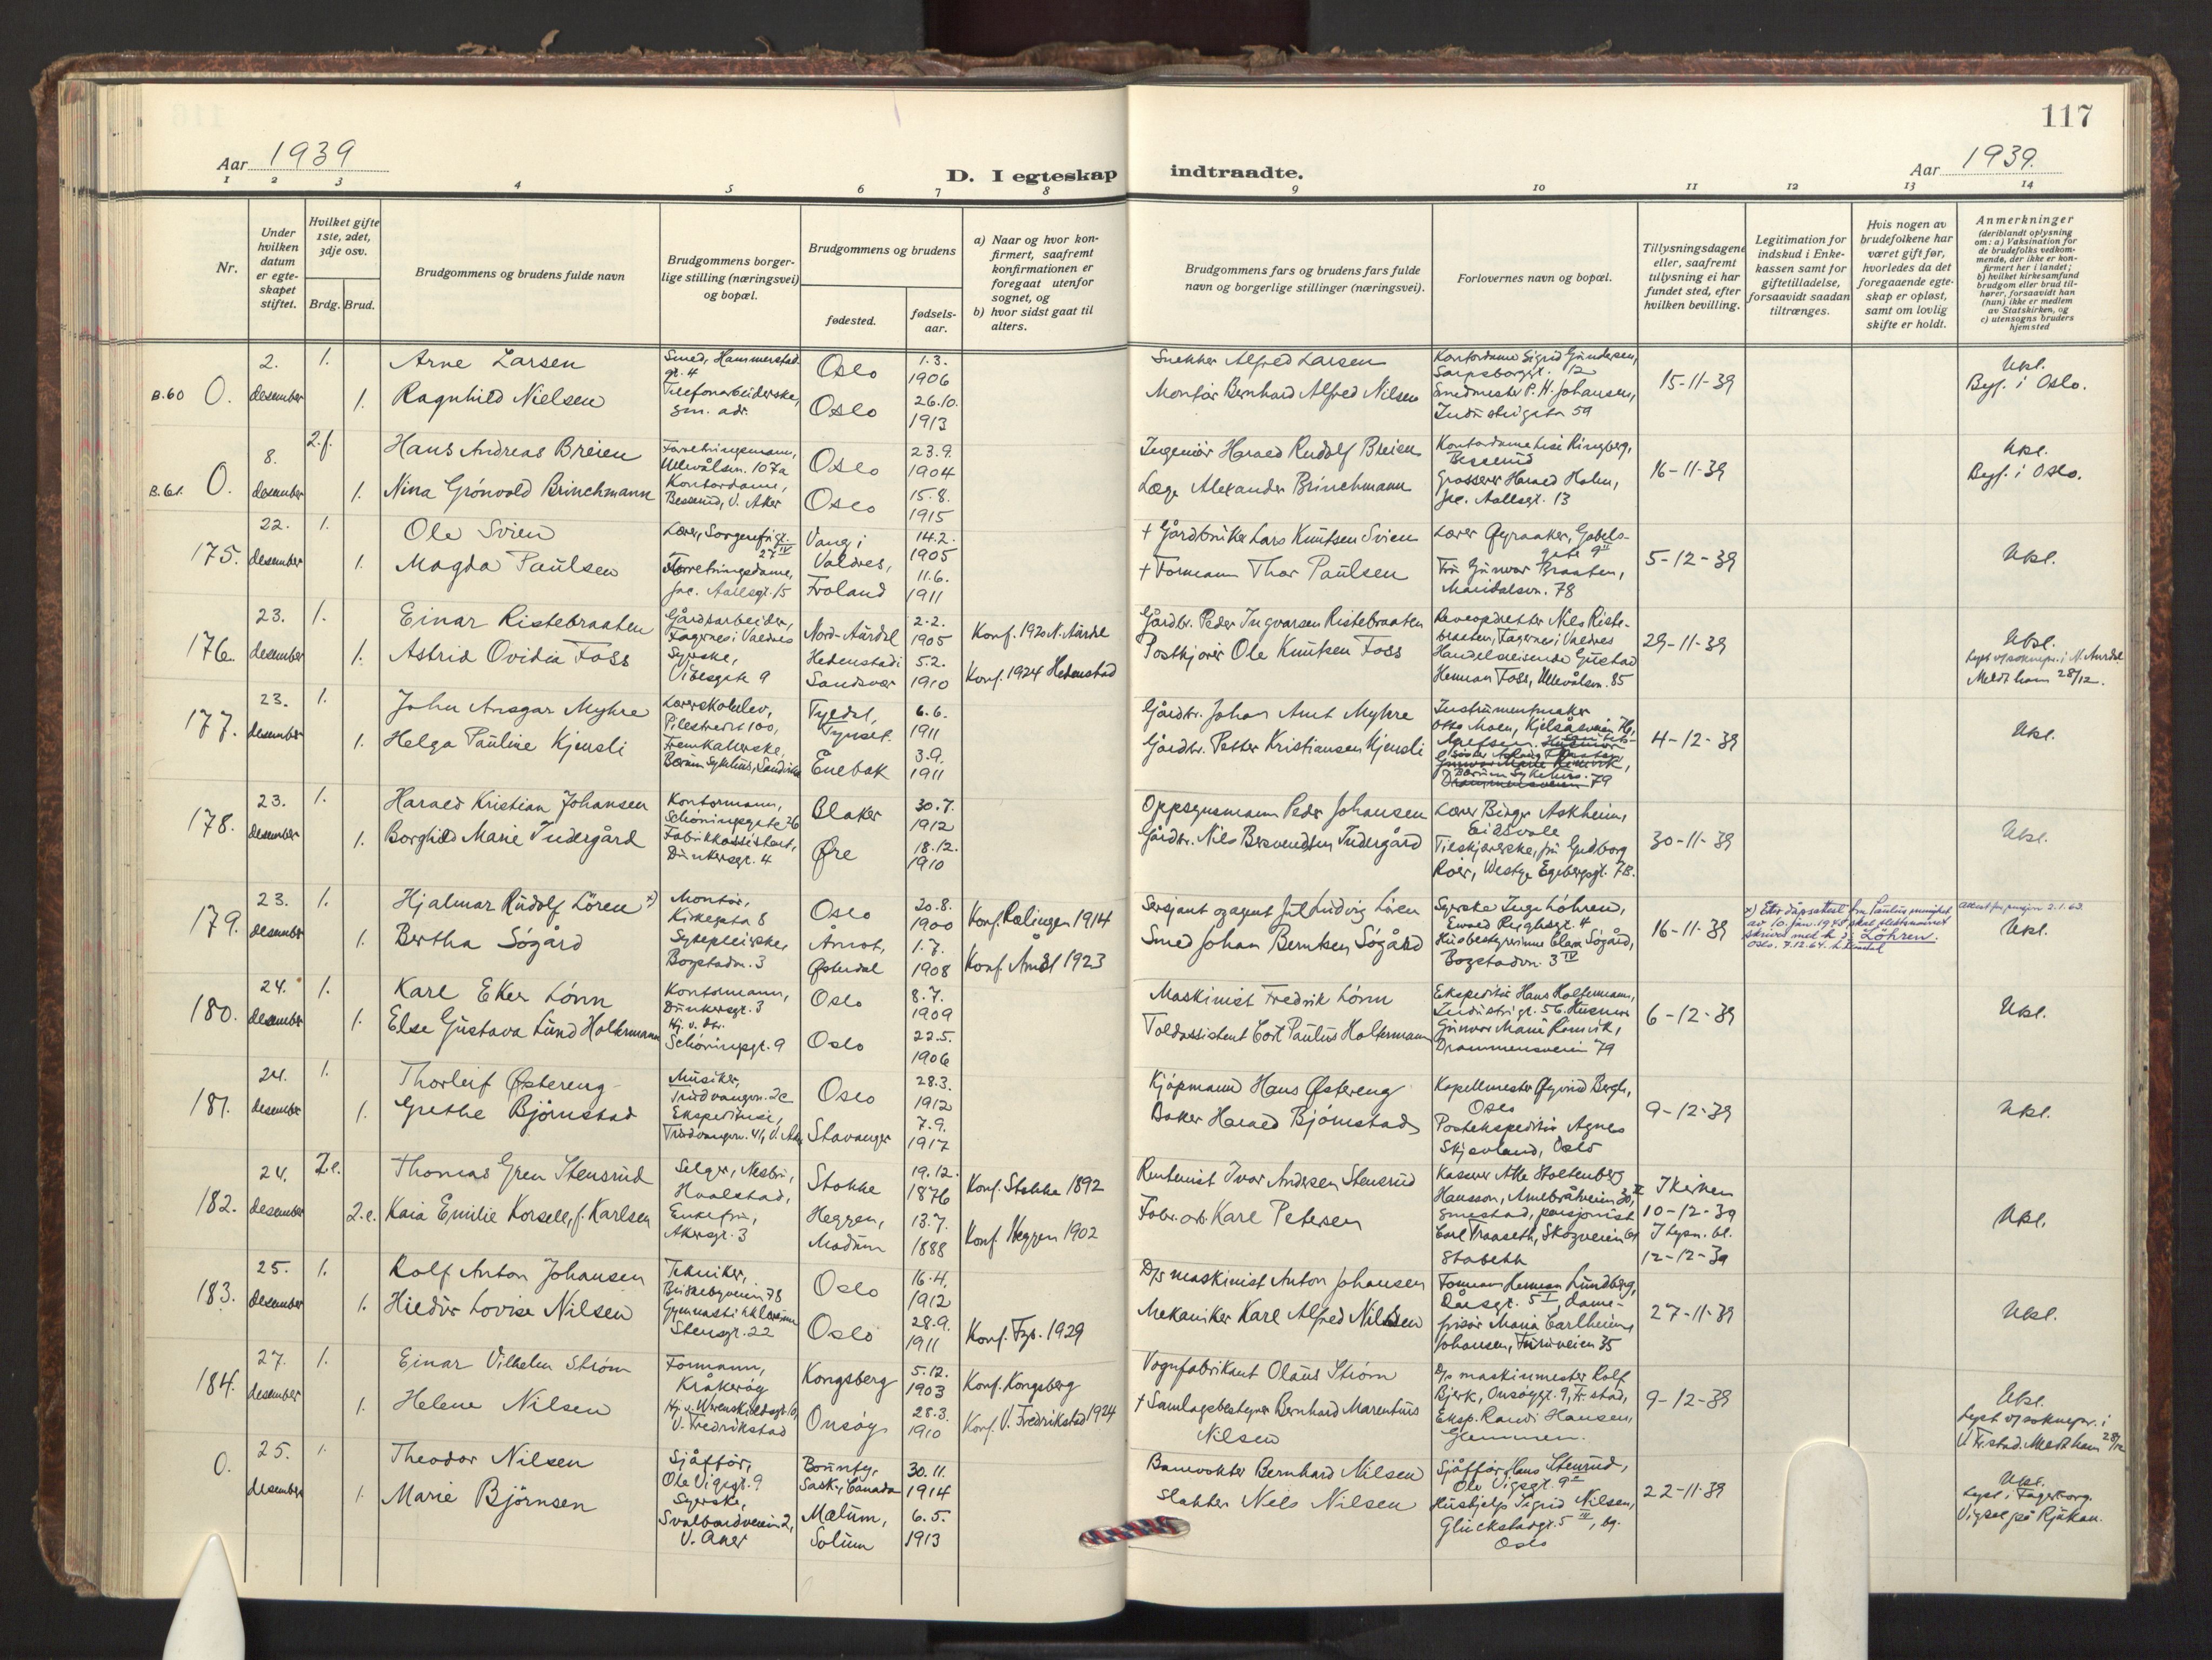 117
Aar 1939
D. I egteskap indtraadte.
Aar 1939.
1 2 3 4 5 6 7 8 9 10 11 12 13 14
Nr.
Under hvilken datum er egteskapet stiftet.
Hvilket gifte 1ste, 2det, 3dje osv.
Brdg. Brud.
Brudgommens og brudens fulde navn
Brudgommens borgerlige stilling (næringsvei) og bopæl.
Brudgommens og brudens
fødested.
fødselsaar.
a) Naar og hvor konfirmert, saafremt konfirmationen er foregaat utenfor sognet, og
b) hvor sidst gaat til alters.
Brudgommens fars og brudens fars fulde navn og borgerlige stillinger (næringsvei).
Forlovernes navn og bopæl.
Tillysningsdagene eller, saafremt tillysning ei har fundet sted, efter hvilken bevilling.
Legitimation for indskud i Enkekassen samt for giftetilladelse, forsaavidt saadan tiltrænges.
Hvis nogen av brudefolkene har været gift før, hvorledes da det foregaaende egteskap er opløst, samt om lovlig skifte er holdt.
Anmerkninger (deriblandt oplysning om: a) Vaksination for de brudefolks vedkommende, der ikke er konfirmert her i landet; b) hvilket kirkesamfund brudgom eller brud tilhører, forsaavidt han (hun) ikke er medlem av Statskirken, og c) utensogns bruders hjemsted
B.60 0. 2. desember 1. 1.
Arne Larsen
Ragnhild Nielsen
Smed, Hammerstad gt. 4
Telefonarbeiderske, sm. adr.
Oslo 1.3. 1906
Oslo 26.10. 1913
Snekker Alfred Larsen
Montør Bernhard Alfred Nilsen
Kontordame Sigrid Gundersen, Sarpsborggt. 12
Smedmester P. H. Johansen, Industrigata 59
15-11-39
Ukl.
Bygf. i Oslo.
B.61. 0. 8. desember 2.f. 1.
Hans Andreas Breien
Nina Grönvold Brinchmann
Forretningsmann, Ullevålsvn. 107a
Kontordame, Besserud, V. Aker
Oslo 23.9. 1904
Oslo 15.8. 1915
Ingeniør Harald Rudolf Breien
Læge Alexander Brinchmann
Kontordame Lise Ringberg, Besserud
Grosserer Harald Holm, Jac. Aallsgt. 13
16-11-39
Ukl.
Bygf. i Oslo.
175. 22. desember 1. 1.
Ole Svien
Magda Paulsen
Lærer, Sorgenfrigt. 27 IV
Forretningsdame, Jac. Aallsgt. 15
Vang i Valdres, 14.2. 1905
Froland 11.6. 1911
+ Gårdbruker Lars Knutsen Svien
+ Formann Thor Paulsen
Lærer Øyraaker, Gabelsgate 9 II
Fru Gunvor Braaten, Maridalsvn. 78
5-12-39
Ukl.
176. 23. desember 1. 1.
Einar Ristebraaten
Astrid Ovidia Foss
Gårdsarbeider, Fagernes i Valdres
Syerske, Vibesgate 9
Nord-Aurdal 2.2. 1905
Hedenstad i Sandsvær 5.2. 1910
Konf. 1920 N. Aurdal
Konf. 1924 Hedenstad
Gårdbr. Peder Ingvarsen Ristebraaten
Postkjører Ole Knutsen Foss
Reveopdretter Nils Ristebraaten, Fagernes i Valdres
Handelsreisende Gustad Herman Foss, Ullevålsvn. 85
29-11-39
Ukl.
Lyst v/ soknepr. i N. Aurdal
Meldt ham 28/12.
177. 23. desember 1. 1.
John Ansgar Myhre
Helga Pauline Kjensli
Lærerskolelev, Pilestredet 100,
Fremkallerske, Bærum Sykehus, Sandvika
Tyldal, Tynset. 6.6. 1911
Enebak 3.9. 1911
Gårdbr. Johan Amt Myhre
Gårdbr. Petter Kristiansen Kjensli
Instrumentmaker Otto Moen, Kjelsåsveien
Bærum Sykehus. 79
4-12-39
Ukl.
178. 23. desember 1. 1.
Harald Kristian Johansen
Borghild Marie Indergård
Kontormann, Schøningsgate 36
Fabrikkassistent, Dunkersgt. 4
Blaker 30.7. 1912
Øre 18.12. 1910
Oppsynsmann Peder Johansen
Gårdbr. Nils Bersvendsen Indergård
Lærer Birger Askheim, Eidsvoll
Tilskjærerske, fru Gudborg Roer, Westye Egebergsgt. 7B.
30-11-39
Ukl.
179. 23. desember 1. 1.
Hjalmar Rudolf Lören x)
Bertha Sögård
Montør, Kirkegata 8
Sykepleierske, Bogstadvn. 3
Oslo 20.8. 1900
Åmot, Østerdal 1.7. 1908
Konf. Rælingen 1914
Konf. Åmot 1923
Sersjant og agent Jul Ludvig Lören
Smed Johan Berntsen Sögård
Syerske Inga Löhren, Eivard Rughsgt. 4
Husbestyrerinne Clara Sögård, Bogstadvn. 3 IV
16-11-39
x) Etter dåpsattest fra Paulus menighet av 10 jan. 1945 skal slektsnavnet skrives med h : Löhren.
Oslo, 7.12.64.
Attest for pensjon 2.1.63.
Ukl.
180. 24. desember 1. 1.
Karl Eker Lönn
Else Gustava Lund Holtermann
Kontormann, Dunkersgt. 3
Hj. v. dtr. Schøningsgt. 9
Oslo 8.7. 1909
Oslo 22.5. 1906
Maskinist Fredrik Lönn
Tollassistent Cort Paulus Holtermann
Ekspeditør Hans Holtermann, Industrigt. 56. Husmor
Gunvor Marie Romvik, Drammensveien 79
6-12-39
Ukl.
181. 24. desember 1. 1.
Thorleif Østereng
Grethe Björnstad
Musiker, Trudvangvn. 2c
Ekspeditrise, Trudvangvn. 41, V. Aker
Oslo 28.3. 1912
Stavanger 7.9. 1917
Kjöpmann Hans Østereng
Baker Harald Björnstad
Kapellmester Øyvind Bergh, Oslo
Postekspeditør Agnes Skjævland, Oslo
9-12-39
Ukl.
182. 24. desember 2.e. 2.e.
Thomas Gren Stensrud
Kaia Emilie Korsell, f. Karlsen
Selger, Nesbru, Hvalstad,
Enkefru, Akersgt. 3
Stokke 19.12. 1876
Heggen, Modum 13.7. 1888
Konf. Stokke 1892
Konf. Heggen 1902
Rentenist Ivar Andersen Stensrud
Fabr. arb. Karl Petersen
Kasserer Atle Stoltenberg Hansson, Arnebråtveien 30, II Smestad, pensjonist
Carl Traaseth, Skogveien 61 Stabekk
I kirken 10-12-39
I lysn. bl. 12-12-39
Ukl.
183. 25. desember 1. 1.
Rolf Anton Johansen
Hildur Lovise Nilsen
Tekniker, Briskebyveien 78
Gymnastikklærerinne Stensgt. 22
Oslo 16.4. 1912
Oslo 28.9. 1911
Konf. Fgb. 1929
D/s maskinist Anton Johansen
Mekaniker Karl Alfred Nilsen
Formann Herman Lundberg, Råsgt. 5 I, damefrisør Maria Carlheim Johansen, Furuveien 35
27-11-39
Ukl.
184. 27. desember 1. 1.
Einar Vilhelm Strøm
Helene Nilsen
Formann, Kråkerøy
Hj. v. Werenskioldsgt. 10, V. Fredrikstad
Kongsberg 5.12. 1903
Onsøy 28.3. 1910
Konf. Kongsberg
Konf. V. Fredrikstad 1924
Vognfabrikant Olaus Strøm
+ Samlagsbestyrer Bernhard Marentius Nilsen
D/s maskinmester Rolf Bjerk, Onsøygt. 9, Fr.stad,
Eksp. Randi Hansen, Glemmen.
9-12-39
Ukl.
Lyst v/ soknepr. i V. Fr.stad. Meldt ham 28/12
0. 25. desember 1. 1.
Theodor Nilsen
Marie Björnsen
Sjåfför, Ole Vigsgt. 9
Syerske, Svalbardveien 2, V. Aker
Bounty, Sask., Canada 30.11. 1914
Mælum, Solum 6.5. 1913
Banevokter Bernhard Nilsen
Slakter Nils Nilsen
Sjåfför Hans Stenrud, Ole Vigsgt. 9 II
Hushjelp Sigrid Nilsen, Glückstadgt. 5 IV, bg. Oslo
22-11-39
Ukl.
Lyst i Fagerborg.
Vigsel på Rjukan.